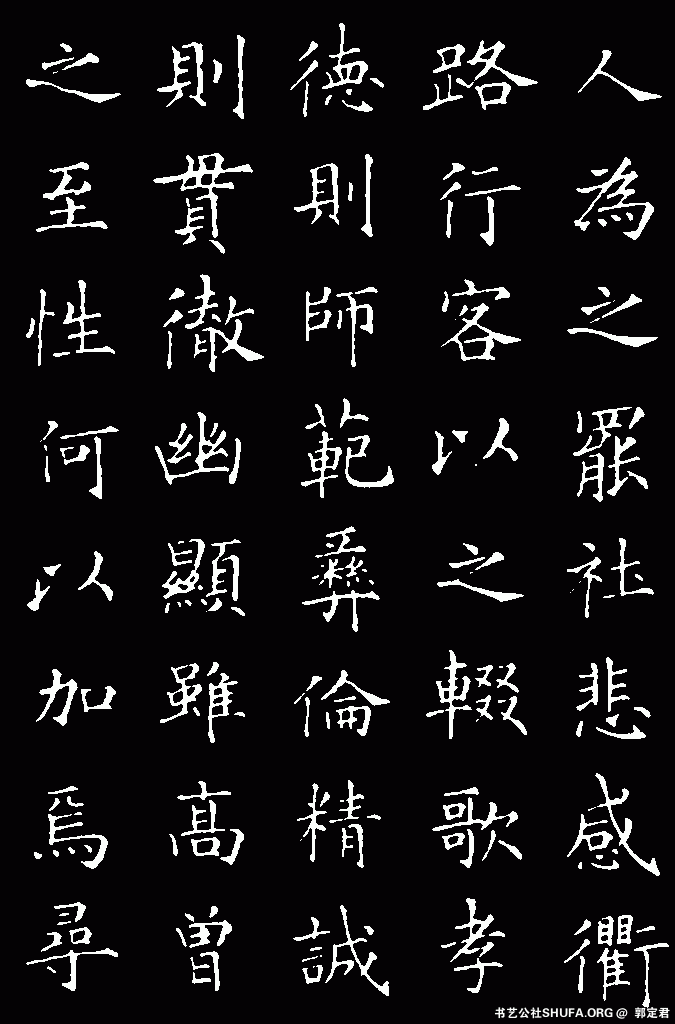 人為之罷社悲感衢
路行客以之輟歌孝
德則師範彝倫精誠
則貫徹幽顯雖高曾
之至性何以加焉尋
书艺公社SHUFA.ORG @ 郭定君